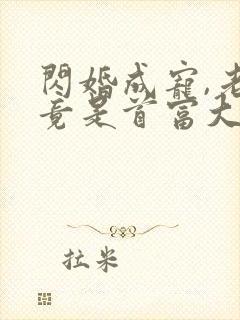 閃婚成寵,老
竟是首富大
拉米